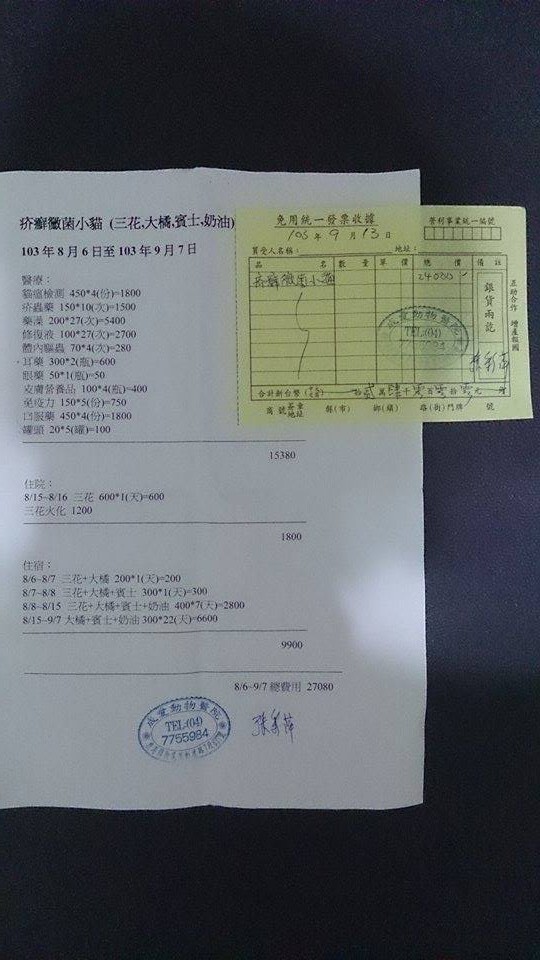 疥癬黴菌小貓 (三花,大橘,賓士,奶油)
103 年 8 月 6 日至 103 年 9 月 7 日
醫療:
貓瘟檢測 450*4(份)=1800
疥蟲藥 150*10(次)=1500
藥澡 200*27(次)=5400
修復液 100*27(次)=2700
體內驅蟲 70*4(次)=280
耳藥 300*2(瓶)=600
眼藥 50*1(瓶)=50
皮膚營養品 100*4(瓶)=400
免疫力 150*5(份)=750
口服藥 450*4(份)=1800
罐頭 20*5(罐)=100
15380
住院:
8/15~8/16 三花 600*1(天)=600
三花火化 1200
1800
住宿:
8/6~8/7 三花+大橘 200*1(天)=200
8/7~8/8 三花+大橘+賓士 300*1(天)=300
8/8~8/15 三花+大橘+賓士+奶油 400*7(天)=2800
8/15~9/7 大橘+賓士+奶油 300*22(天)=6600
9900
8/6~9/7 總費用 27080
動物醫院
TEL:(04)
7755984
免用統一發票收據
營利事業統一編號
103 年 9 月 13 日
買受人名稱: 地址:
品 名 數 量 單 價 總 價 備 註
疥癬黴菌小貓 24000
銀貨兩訖
互助合作 增產報國
TEL:(04)
合計新台幣 拾 貳 萬 肆 千 零 百 零 拾 零 元
商號蓋章地址 縣(市) 鄉(鎮) 路(街)門牌 號